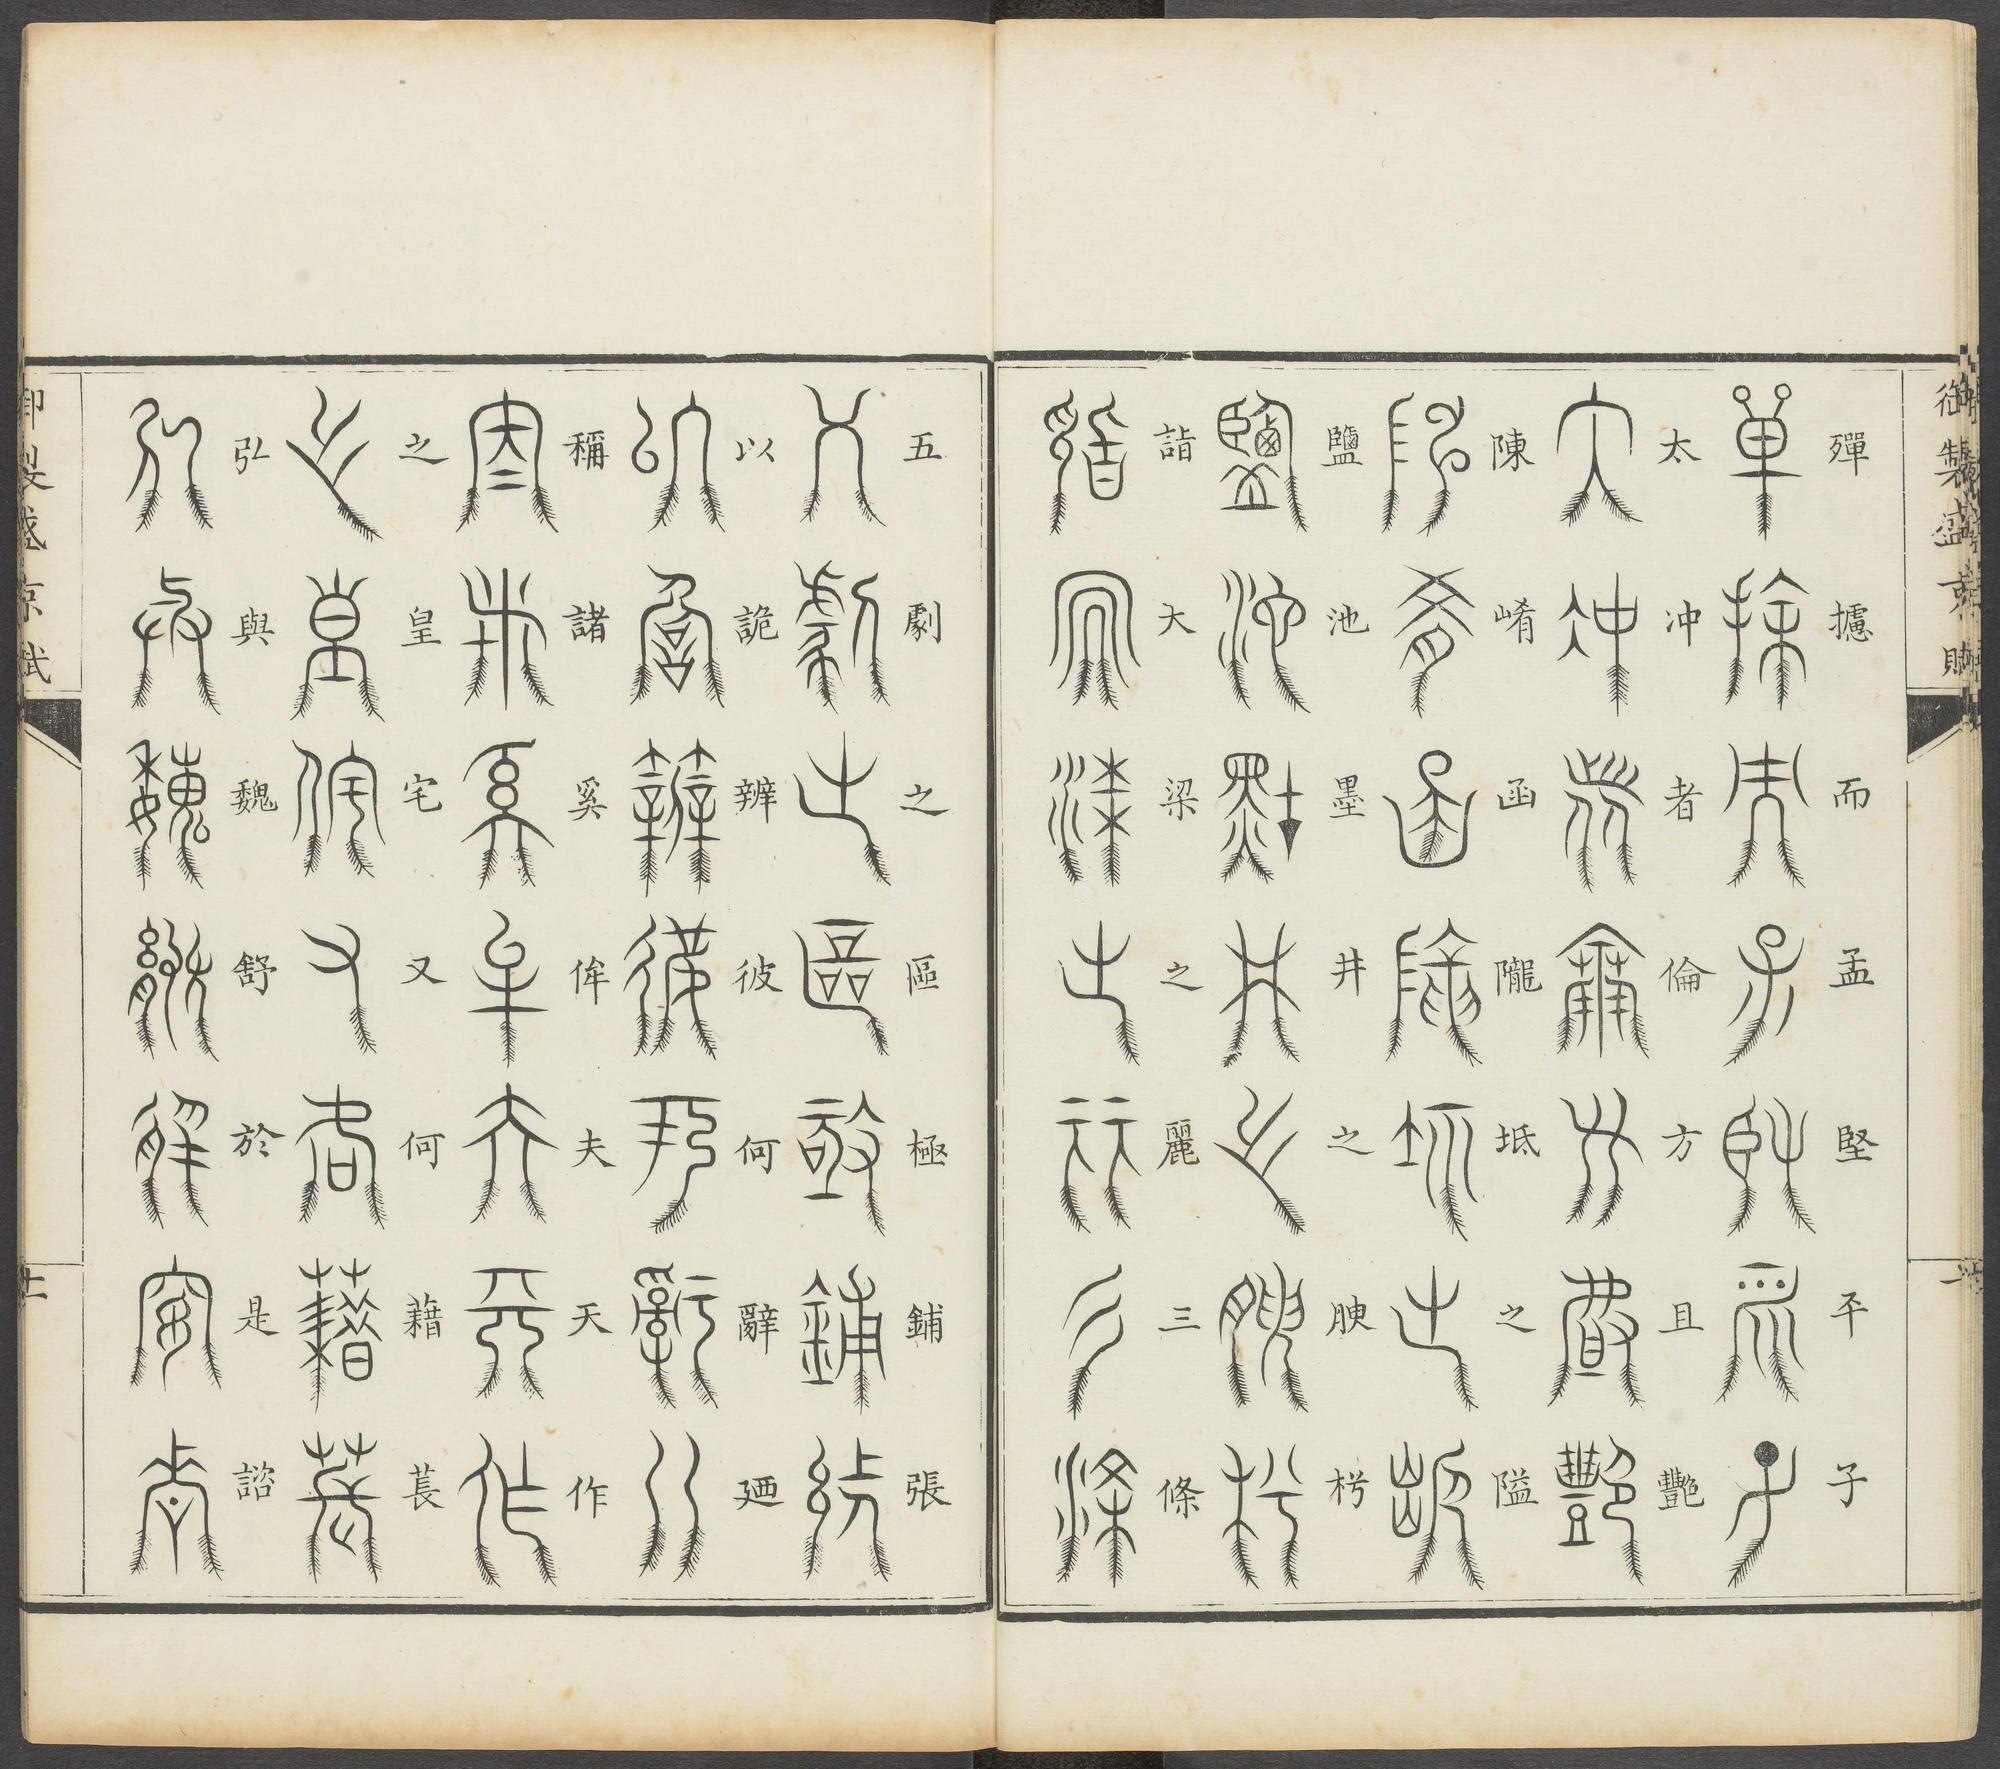 御製盛京賦
殫攄而孟堅平子
太冲者倫方且豔
陳崤函隴坻之隘
鹽池墨井之腴枵
詣大梁之麗三條
五劇之區極鋪張
以詭辨彼何辭廼
稱諸奚侔夫天作
之皇宅又何藉萇
弘與魏舒於是諮
御製盛京賦
十一